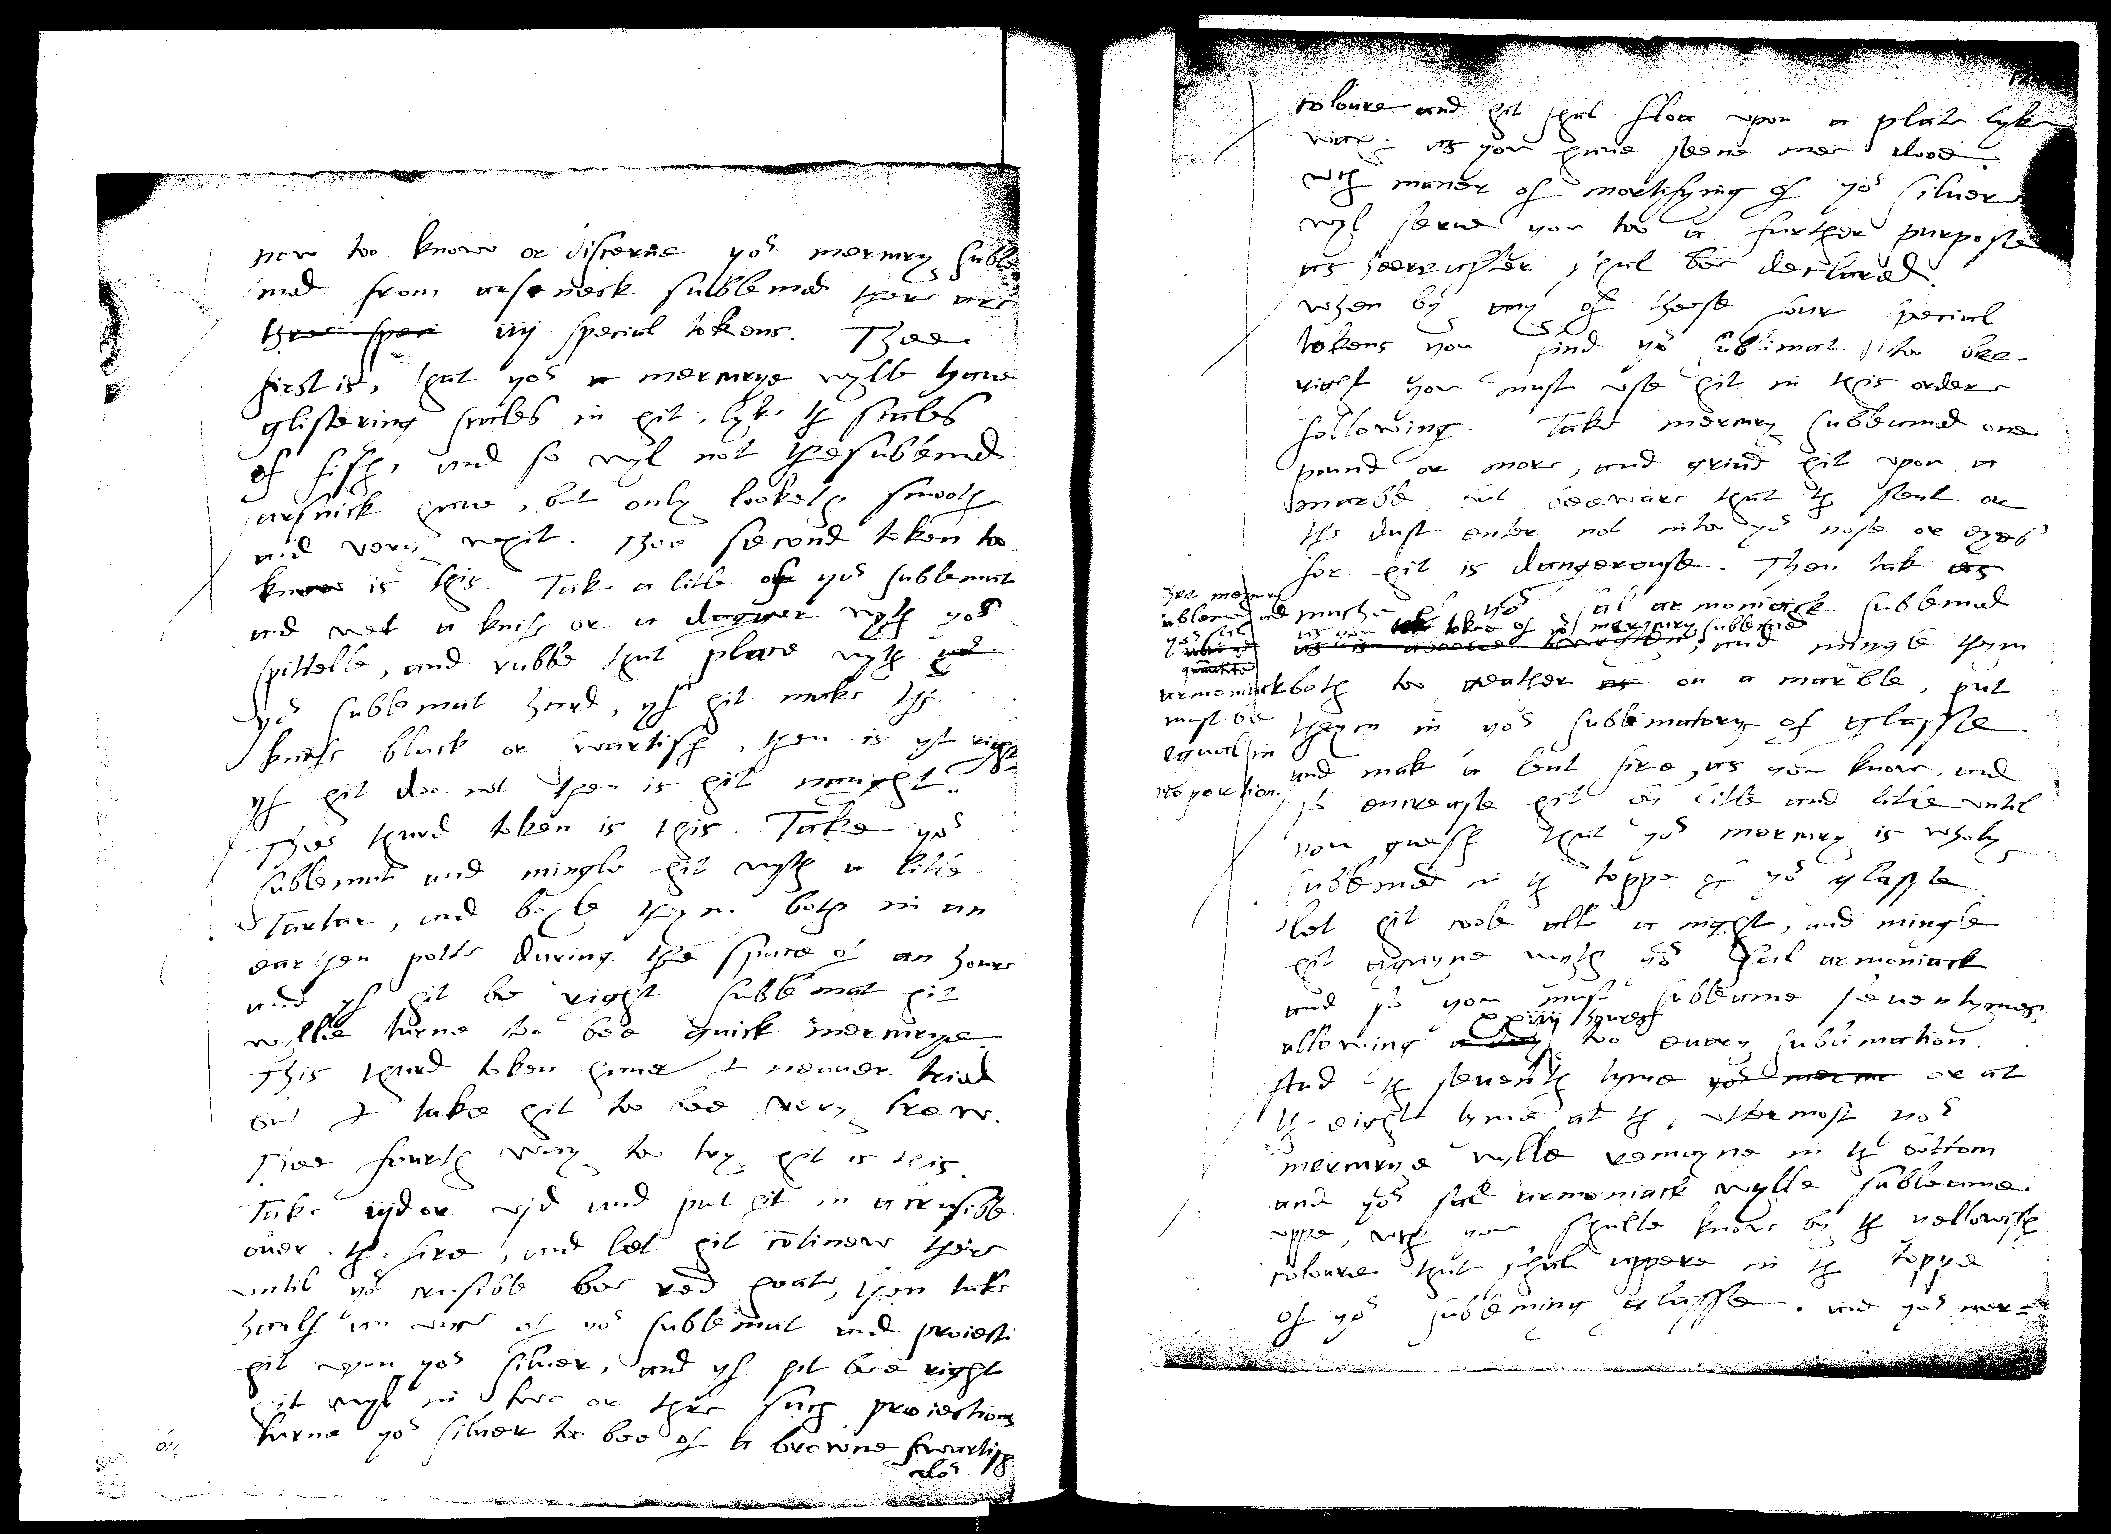 now too know or discerne yor mercury suble
med from arseneck sublemed there are
three spea iiij special tokens. Thee
first is, that yor m mercurye wylle have
glistering scales in hit, lyke th scales
of fish, and so wyl not the sublemed
arsnick have, but only looketh smooth
and very whit. Thee second token too
know is this. Take a litle of yor sublemat
and wet a knife or a dagger wyth yor
spittelle, and rubbe that place wyth yor
yor sublemat hard, yf hit make the
knife black or swartish, then is yt right
yf hit doo not then is hit naught.
Thee third token is this. Take yor
sublemat and mingle hit wyth a litle
Tartar, and boyle theym both in an
earthen potte during the space of an houre
and yf hit be right sublemat hit
wylle turne too bee quick mercurye
This third token have I nevver tried
but I take hit too bee very trew.
Thee fourth way too try hit is this.
Take and put hit in a crusible
over the fire, and let hit cōtinew there
until yor crusible bee red hoate, then take
half an unce of yor sublemat and proiect
hit upon yor silver, and yf hit bee right
hit wyl in two or thre such proiections
turne yor silver too bee of a browne swartish
coloure and hit shal flow upon a plate lyke
wax, as you have seene mee doo
wch maner of mortifying of yor silver
wyl serve you too a further purpose
as heerafter shal bee declared.
When by any of these four special
tokens you find yor sublimat too bee
right you must use hit in this order
following. Take mercury sublemed one
pound or more, and grind hit upon a
marble but beeware that th smel or
the dust enter not into yor nose or eyes
for hit is dangerouse. Then tak as
muche of yor sal armoniack sublemed
as you tak tooke of yor mercury sublemed
and mingle them
both too geather as on a marble, put
theym in yor sublimatory of glasse
and mak a lent fire, as you know, and
so encrease hit by litle and litle until
you guesse that yor mercury is wholy
sublemed in th toppe of yor glasse
let hit coole alle a night, and mingle
hit agayne wyth yor sal armoniack
and so you must subleme seven tymes
xxiiij houres
allowing a day too every sublimation.
And th seventh tyme yor mercur or at
th eight tyme at th uttermost yor
mercurye wylle remayne in th bottom
and yor sal armoniack wylle subleme
uppe, wch you shalle know by th yellowish
coloure that shal appere in th toppe
of yor subleming glasse. and yor mer=
The mercury
sublemed and
yor sal
quantite
armoniack
must be
equal in
proportion.